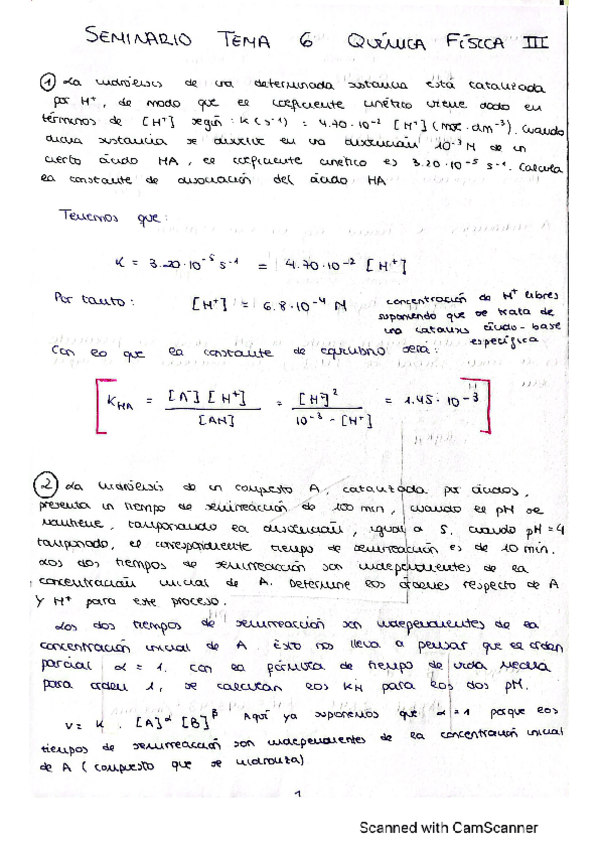 SEMINARIO TEMA 6 QUÍMICA FÍSICA III
① La hidrólisis de una determinada sustancia está catalizada
por H⁺, de modo que el coeficiente cinético viene dado en
términos de [H⁺] según: K (s⁻¹) = 4.70·10⁻² [H⁺] (mol·dm⁻³). Cuando
dicha sustancia se disuelve en una disolución 10⁻³ M de un
cierto ácido HA, el coeficiente cinético es 3.20·10⁻⁵ s⁻¹. Calcula
la constante de disociación del ácido HA
Tenemos que:
K = 3.20·10⁻⁵ s⁻¹ = 4.70·10⁻² [H⁺]
Por tanto: [H⁺] = 6.8·10⁻⁴ M
concentración de H⁺ libres
suponiendo que se trata de
una catálisis ácido-base
específica
Con lo que la constante de equilibrio será:
K_HA = [A⁻][H⁺] / [AH] = [H⁺]² / 10⁻³ - [H⁺] = 1.45·10⁻³
② La hidrólisis de un compuesto A, catalizada por ácidos,
presenta un tiempo de semirreacción de 100 min, cuando el pH se
mantiene, tamponando la disolución, igual a 5. Cuando pH = 4
tamponado, el correspondiente tiempo de semirreacción es de 10 min.
Los dos tiempos de semirreacción son independientes de la
concentración inicial de A. Determine los órdenes respecto de A
y H⁺ para este proceso.
Los dos tiempos de semirreacción son independientes de la
concentración inicial de A. Esto nos lleva a pensar que el orden
parcial α = 1. Con la fórmula de tiempo de vida media
para orden 1, se calculan los K_H para los dos pH.
v = K · [A]^α [B]^β Aquí ya suponemos que α = 1 porque los
tiempos de semirreacción son independientes de la concentración inicial
de A (compuesto que se hidroliza)
1
Scanned with CamScanner